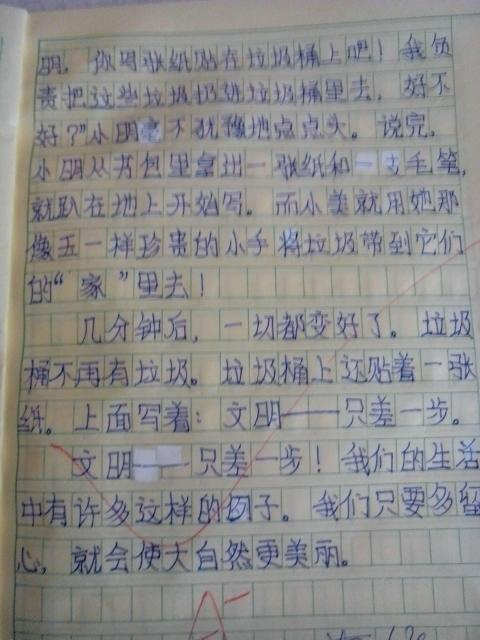 明，你写张纸贴在垃圾桶上吧！我负
责把这些垃圾扔进垃圾桶里去，好不
好？”小明毫不犹豫地点点头。说完，
小明从书包里拿出一张纸和一支毛笔，
就趴在地上开始写。而小美就用她那
像玉一样珍贵的小手将垃圾带到它们
的“家”里去！
几分钟后，一切都变好了。垃圾
桶不再有垃圾。垃圾桶上还贴着一张
纸。上面写着：文明——只差一步。
文明——只差一步！我们的生活
中有许多这样的例子。我们只要多留
心，就会使大自然更美丽。
A-